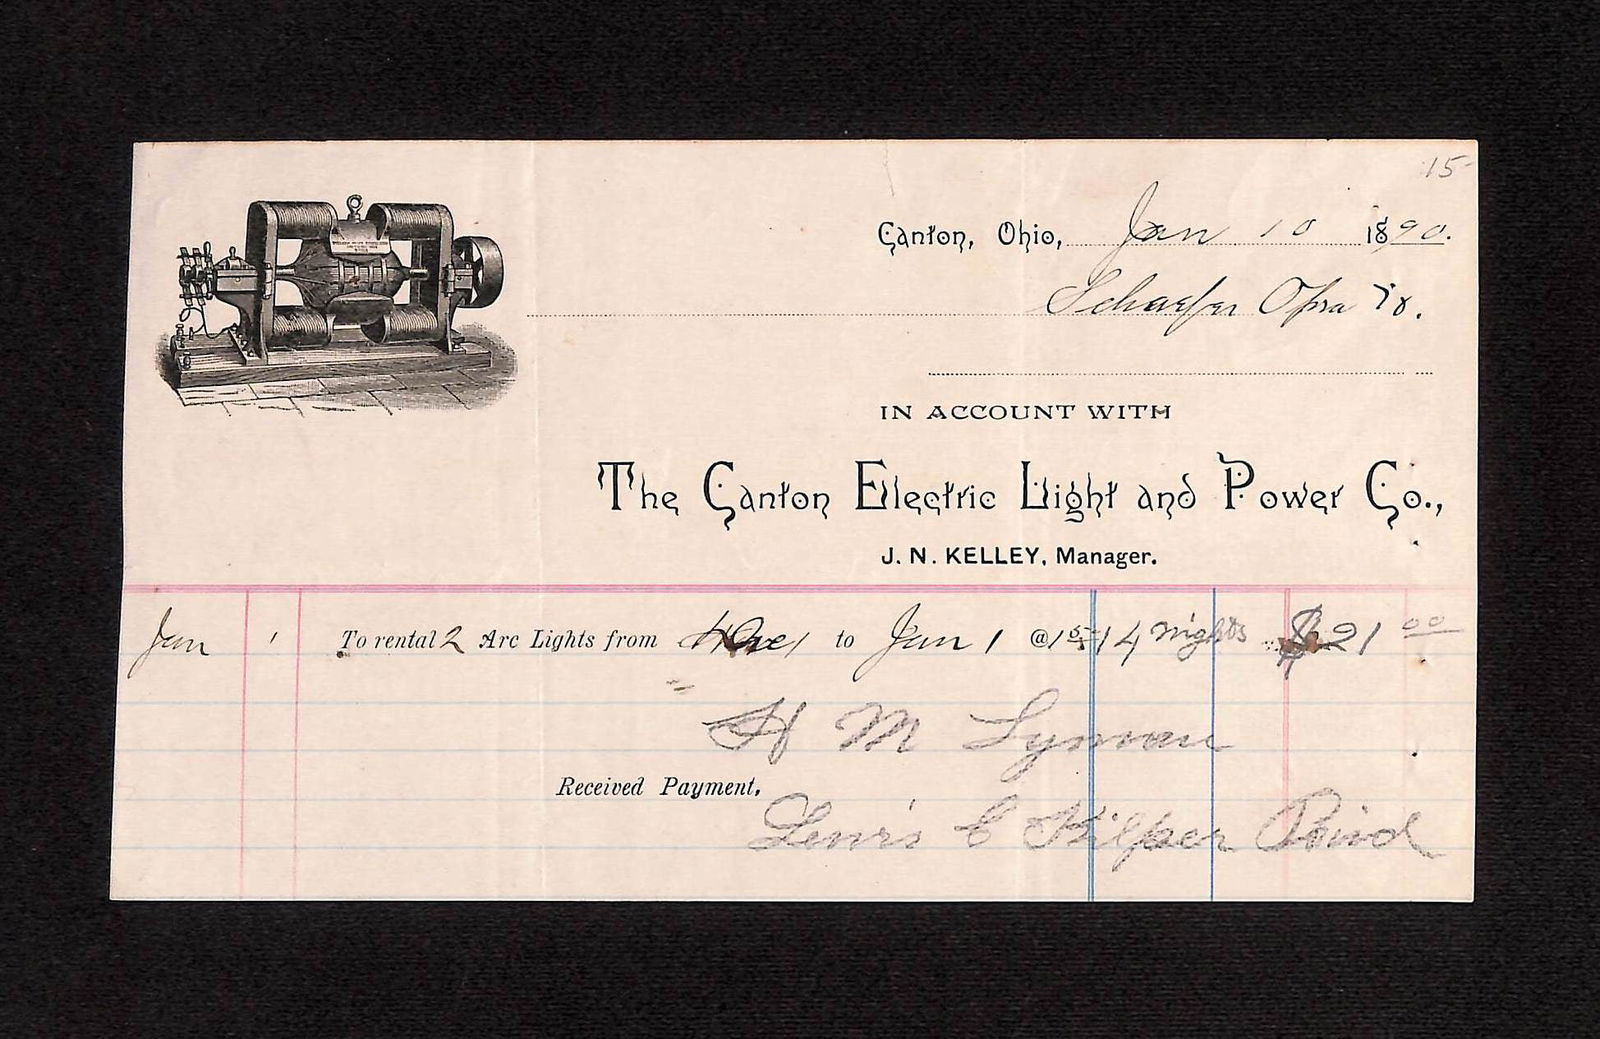 15
Canton, Ohio, Jan 10 1890.
Schaefer Opra
IN ACCOUNT WITH
The Canton Electric Light and Power Co.,
J. N. KELLEY, Manager.
Jan 1 To rental 2 Arc Lights from to Jan 1 @ 14 nights $21 00
H M Lyman
Received Payment,
Lewis C